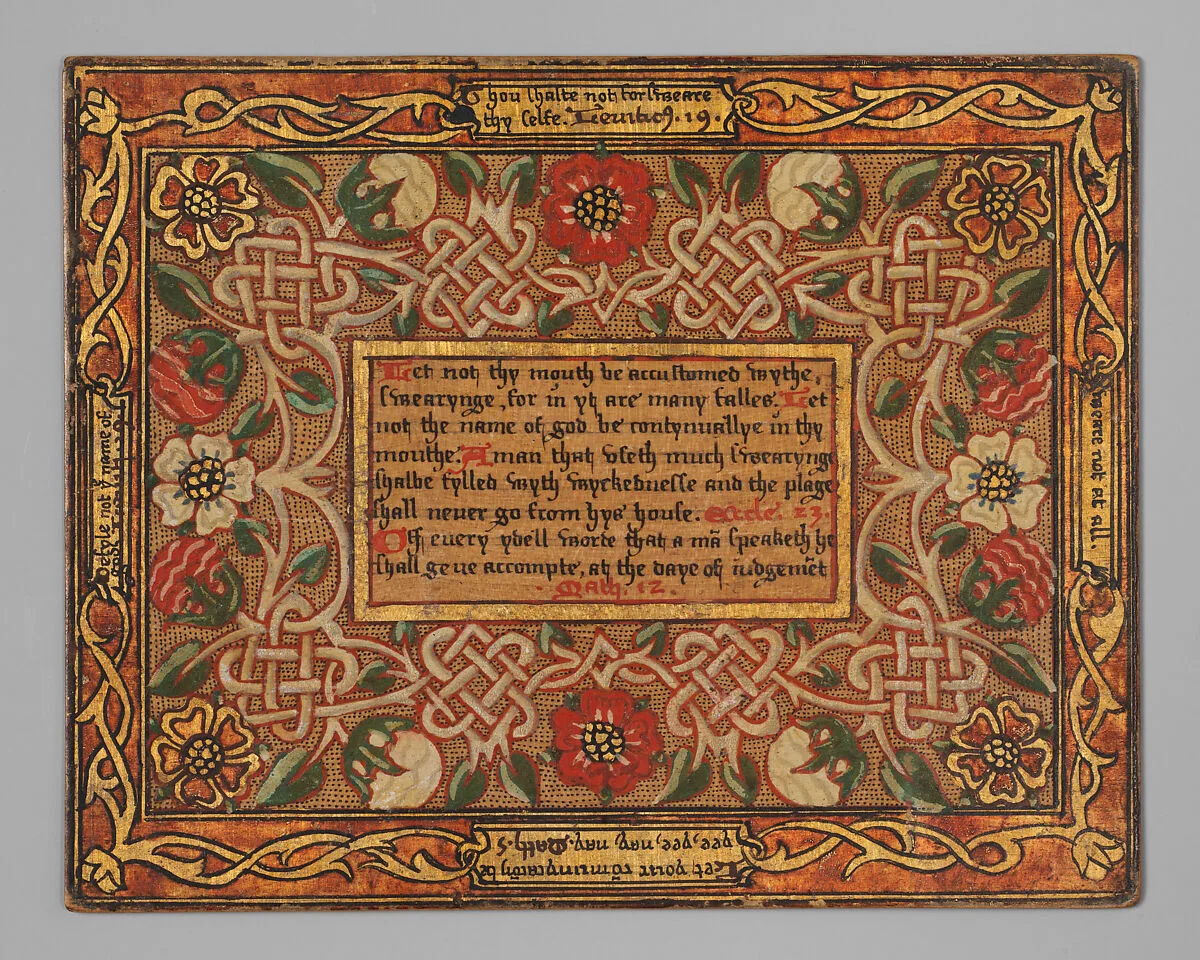 hou shalte not forsweare
thy selfe. Leuiticꝰ. 19.
Let not thy mouth be accustomed wythe,
swearynge, for in yt are many falles. Let
not the name of god be contynuallye in thy
mouthe. A man that vseth much swearynge
shalbe fylled wyth wyckednesse and the plage
shall never go from hys house. Eccle. 23.
Off euery ydell worte that a mā speaketh he
shall geue accompte, at the daye of iudgemēt
. Math. 12 .
Defyle not yͤ name of
thy
sweare not at all.
Let your comunycatiō be
yee, yee, nay, nay. Math. 5